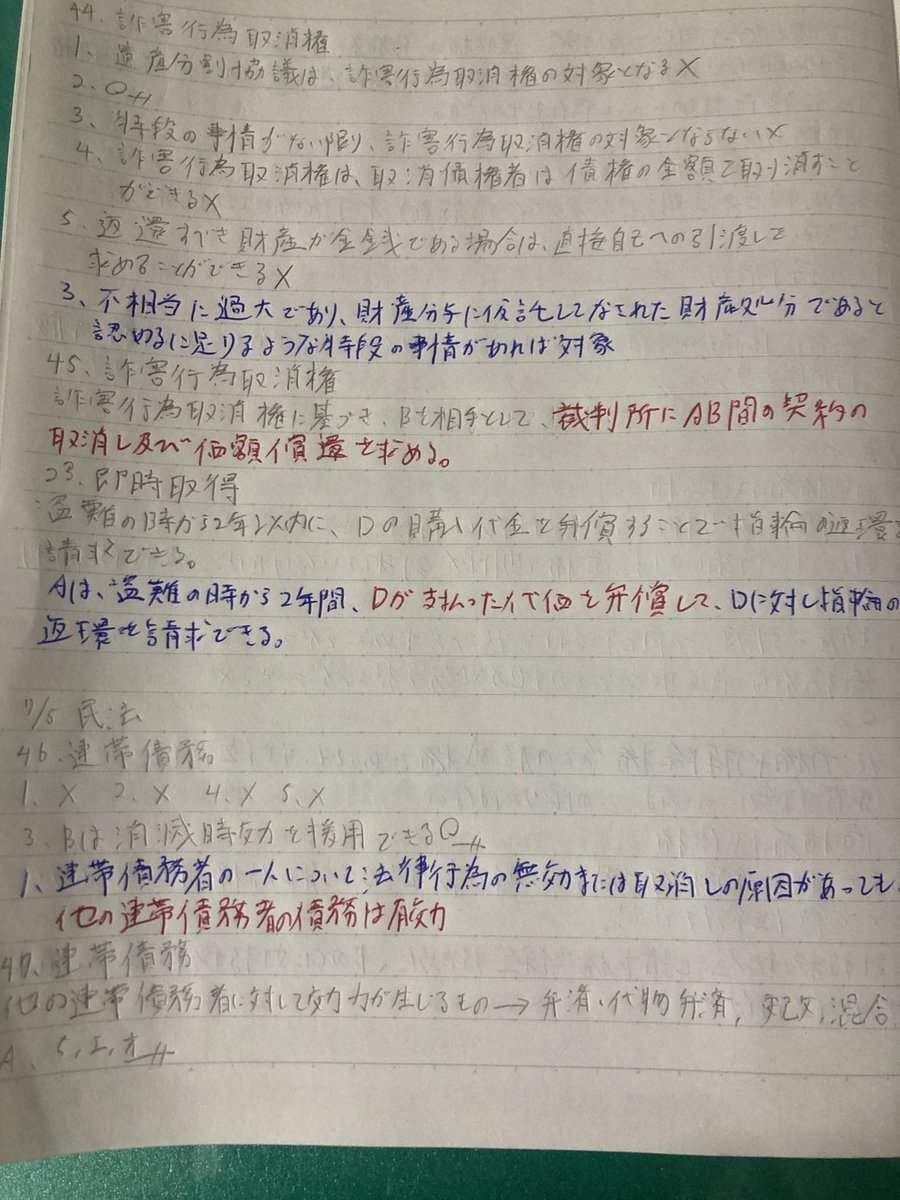 44. 詐害行為取消権
1、遺産分割協議は、詐害行為取消権の対象となる×
2. ○
3、特段の事情がない限り、詐害行為取消権の対象とならない×
4、詐害行為取消権は、取消債権者は債権の全額で取り消すこと
ができる×
5、返還すべき財産が金銭である場合は、直接自己への引渡しを
求めることができる×
3、不相当に過大であり、財産分与に仮託してなされた財産処分であると
認めるに足りるような特段の事情があれば対象
45、詐害行為取消権
詐害行為取消権に基づき、Bを相手として、裁判所にAB間の契約の
取消し及び価額償還を求める。
23、即時取得
盗難の時から2年以内に、Dの購入代金を弁償することで指輪の返還を
請求できる。
Aは、盗難の時から2年間、Dが支払った代価を弁償して、Dに対し指輪の
返還を請求できる。
7/5 民法
46、連帯債務
1、× 2、× 4、× 5、×
3、Bは消滅時効を援用できる○
1、連帯債務者の一人について法律行為の無効または取消しの原因があっても、
他の連帯債務者の債務は有効
47、連帯債務
他の連帯債務者に対して効力が生じるもの→弁済、代物弁済、更改、混合
A、う,エ,オ